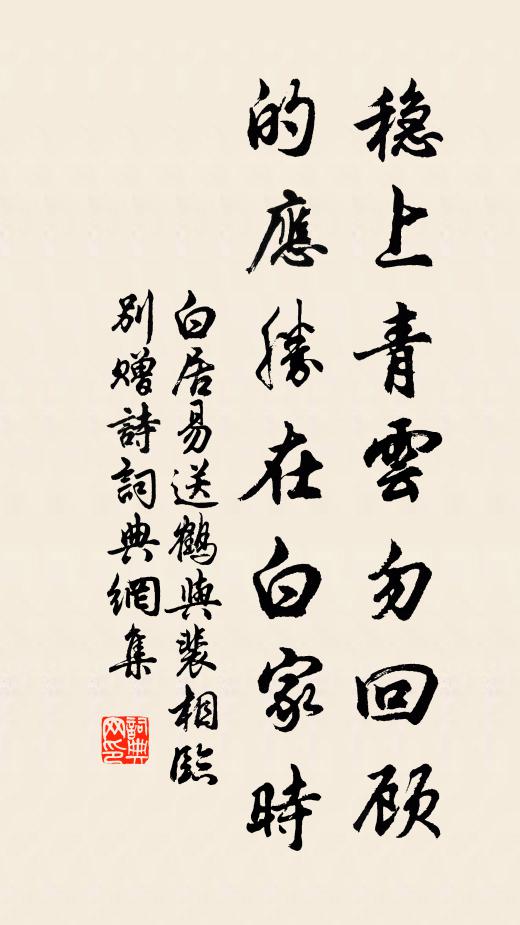 穏上青雲勿回顾
的應勝在白家時
白居易送鶴與裴相臨
別赠詩詞典網集
詞典网印